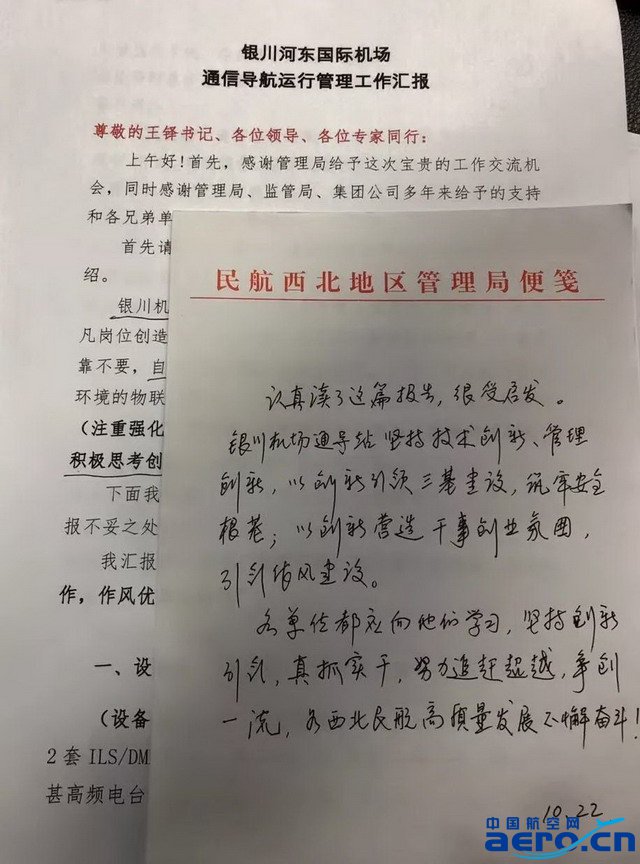 银川河东国际机场
通信导航运行管理工作汇报
尊敬的王铎书记、各位领导、各位专家同行:
上午好!首先,感谢管理局给予这次宝贵的工作交流机
会,同时感谢管理局、监管局、集团公司多年来给予的支持
和各兄弟单
首先请
绍。
银川机
凡岗位创造
靠不要,自
环境的物联
(注重强化
积极思考创
下面我
报不妥之处
我汇报
作,作风优
一、设
(设备
2套ILS/DM
甚高频电台
民航西北地区管理局便笺
认真读了这篇报告,很受启发。
银川机场通导站坚持技术创新、管理
创新,以创新引领三基建设,筑牢安全
根基;以创新营造干事创业氛围,
引领作风建设。
各单位都应向他们学习,坚持创新
引领,真抓实干,努力追赶超越,争创
一流,为西北民航高质量发展不懈奋斗!
10.22
中国航空网
aero.cn